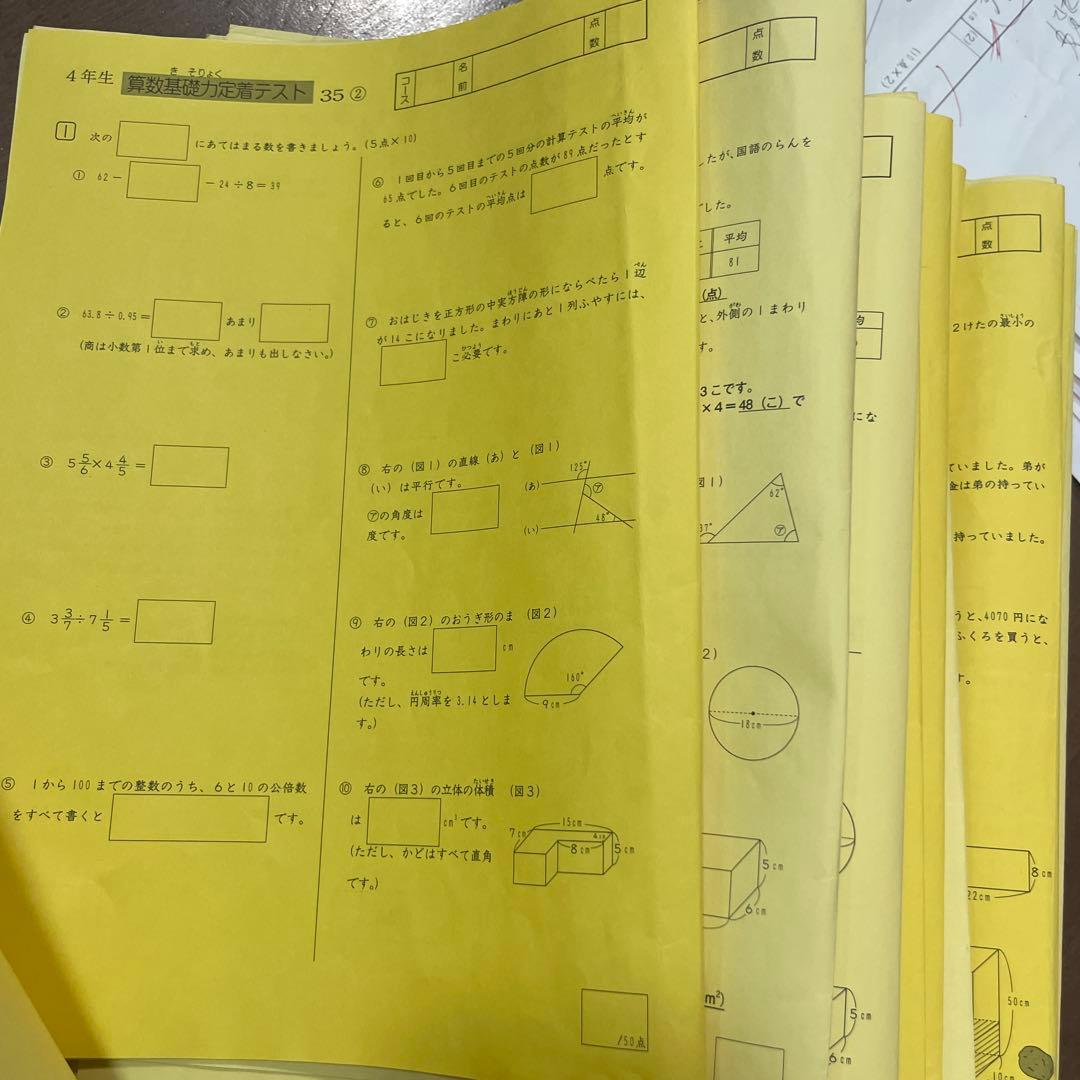 4年生 算数基礎力定着テスト 35 ②
き そりょく
コース
名前
点数
1 次の にあてはまる数を書きましょう。(5点×10)
① 62− −24÷8=39
② 63.8÷0.95= あまり
(商は小数第1位まで求め、あまりも出しなさい。)
③ 5 5/6×4 4/5=
④ 3 3/7÷7 1/5=
⑤ 1から100までの整数のうち、6と10の公倍数
をすべて書くと です。
⑥ 1回目から5回目までの5回分の計算テストの平均が
65点でした。6回目のテストの点数が89点だったとす
ると、6回のテストの平均点は 点です。
⑦ おはじきを正方形の中実方陣の形にならべたら1辺
が14こになりました。まわりにあと1列ふやすには、
こ必要です。
⑧ 右の(図1)の直線(あ)と (図1)
(い)は平行です。
㋐の角度は
度です。
125°
(あ)
㋐
48°
(い)
⑨ 右の(図2)のおうぎ形のま (図2)
わりの長さは cm
です。
(ただし、円周率を3.14としま
す。)
160°
9cm
⑩ 右の(図3)の立体の体積 (図3)
は cm³です。
(ただし、かどはすべて直角
です。)
15cm
7cm
4cm
8cm
5cm
/50点
点数
したが、国語のらんを
でした。
平均
81
(点)
と、外側の1まわり
す。
3こです。
×4=48(こ)で
図1)
62°
37°
㋐
2)
18cm
5cm
6cm
m²)
均
にな
5cm
6cm
点数
2けたの最小の
ていました。弟が
金は弟の持ってい
持っていました。
うと、4070円にな
ふくろを買うと、
す。
8cm
22cm
50cm
10cm